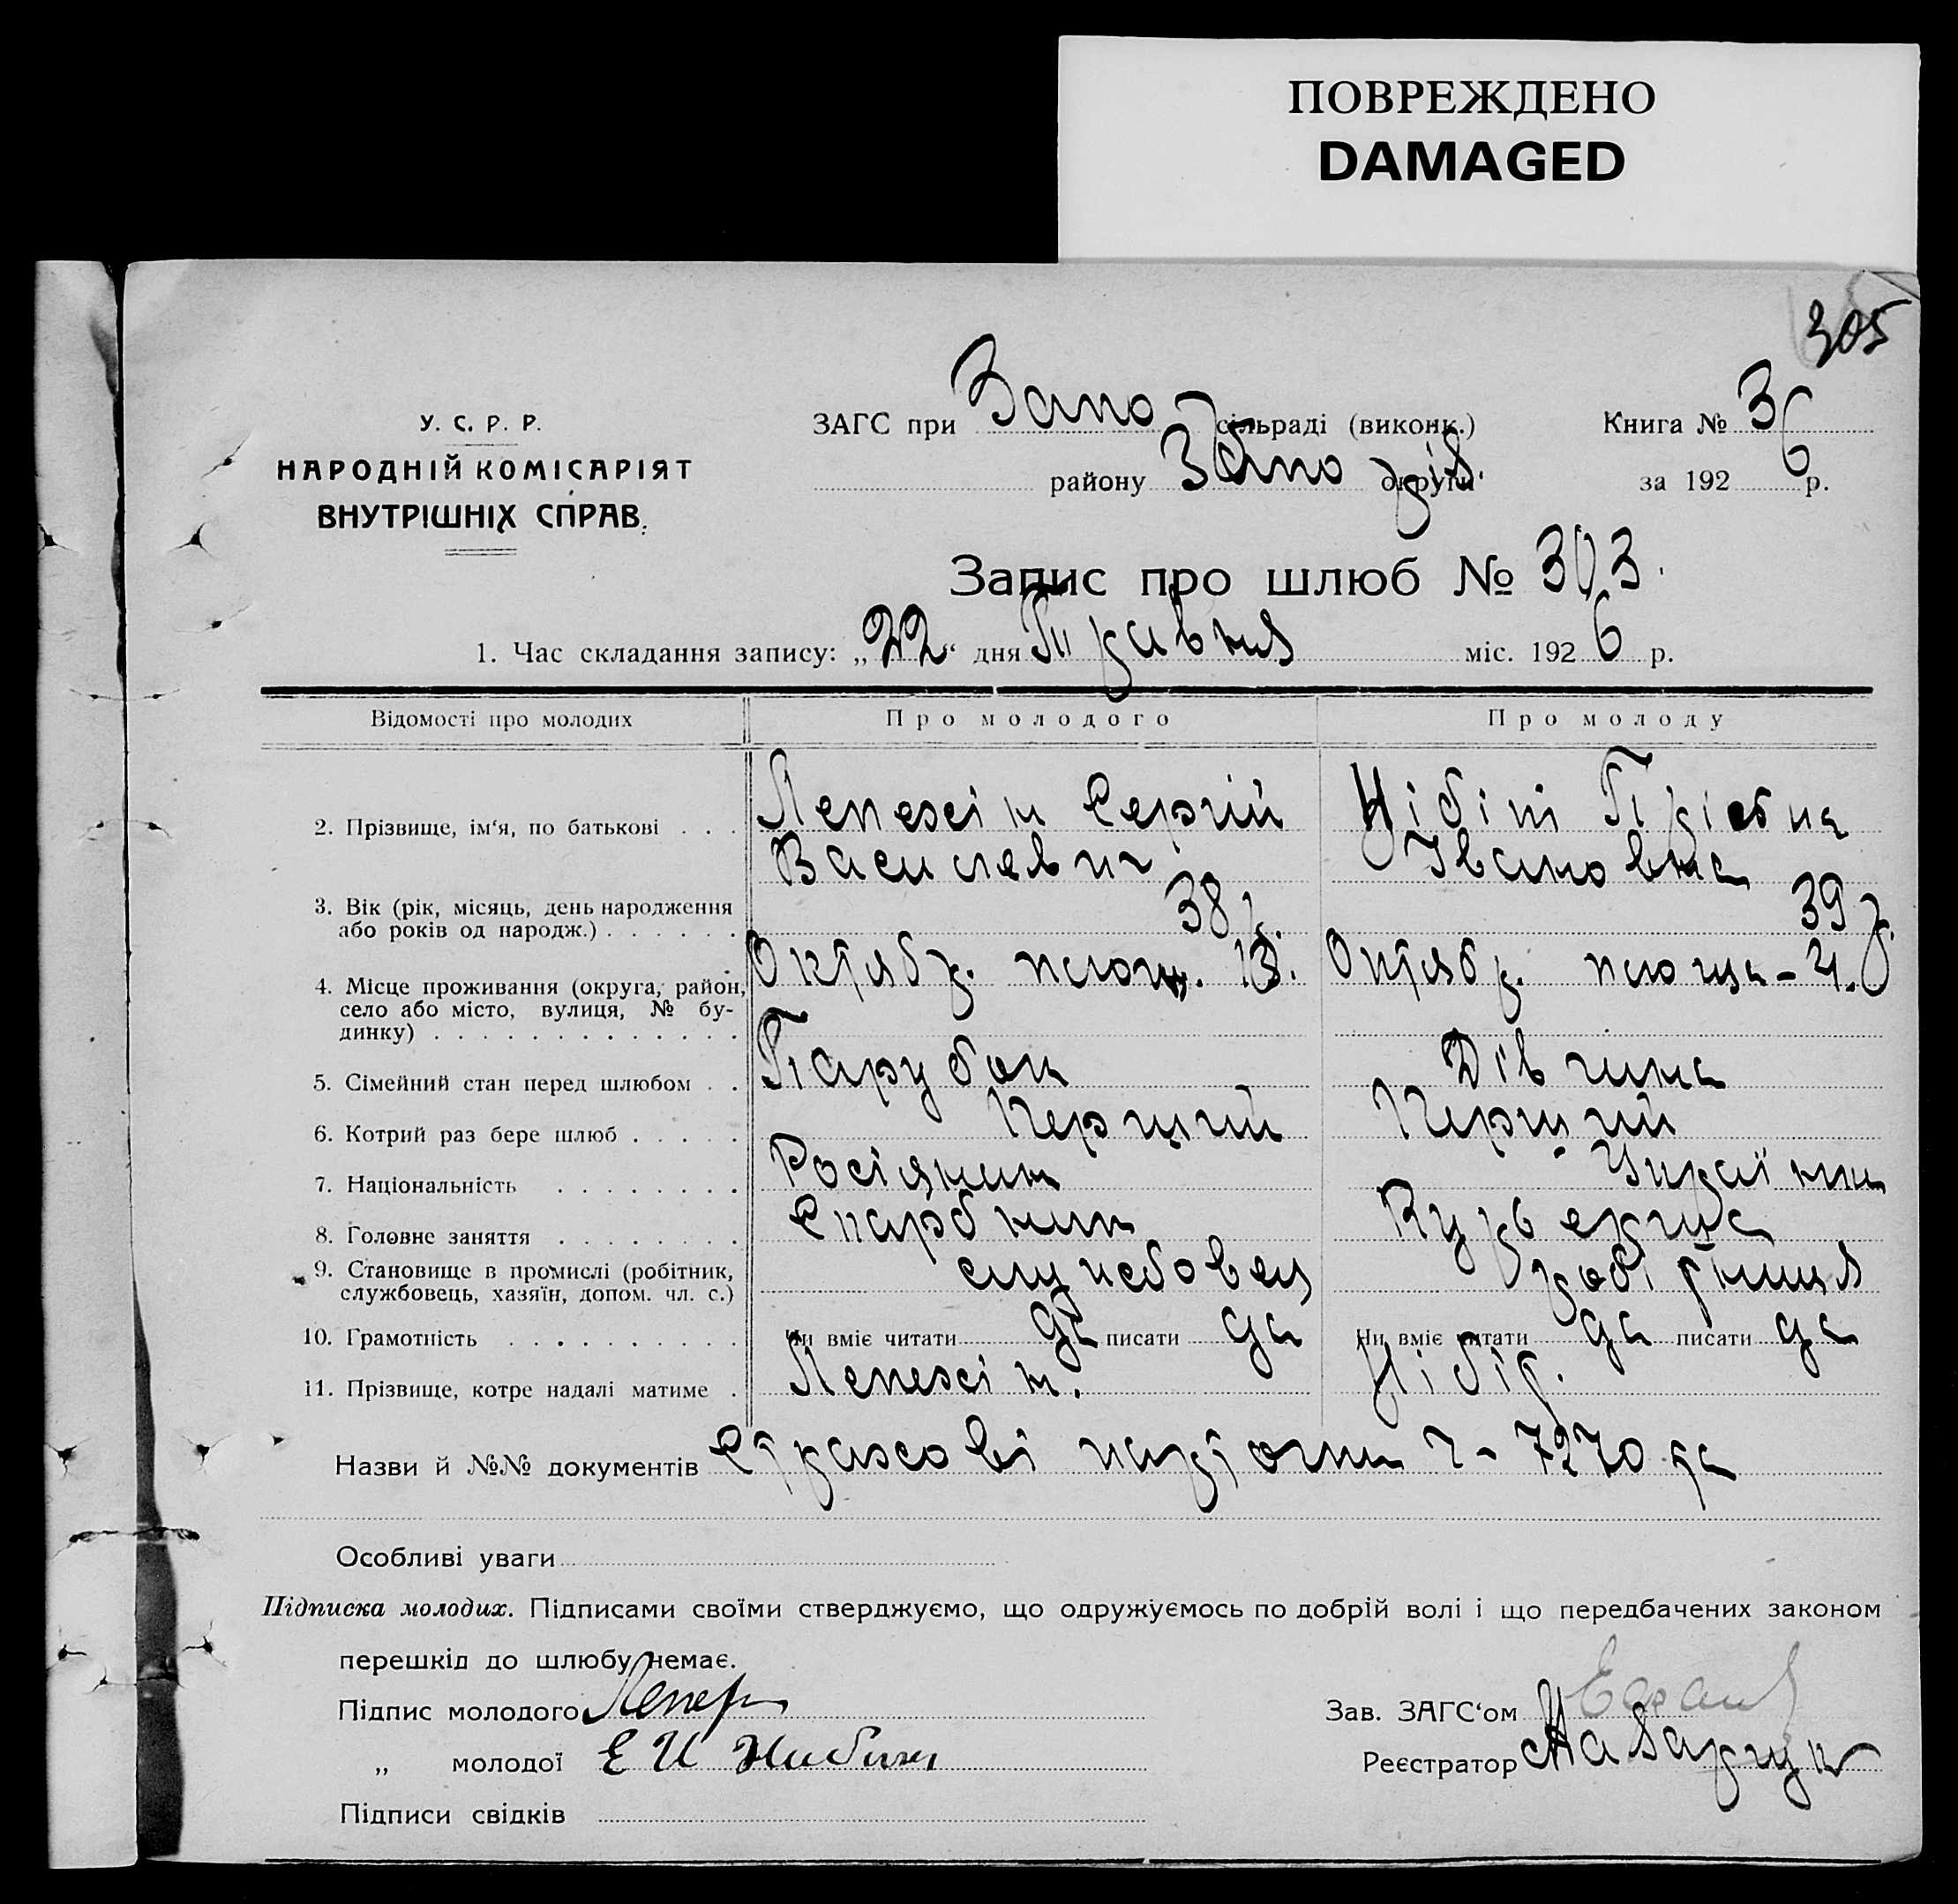 ПОВРЕЖДЕНО
DAMAGED
305
У. С. Р. Р.
НАРОДНІЙ КОМІСАРІЯТ
ВНУТРІШНІХ СПРАВ.
ЗАГС при Запо сільраді (виконк.)
району Запо округи
Книга № 3
за 1926 р.
Запис про шлюб № 303.
1. Час складання запису: „22“ дня Травня міс. 1926 р.
Відомості про молодих Про молодого Про молоду
2. Прізвище, ім'я, по батькові . . . Лепехін Сергій
Василевич Івановна
3. Вік (рік, місяць, день народження або років од народж.) . . . . . . 38 р. 39 р.
4. Місце проживання (округа, район, село або місто, вулиця, № будинку) . . . . . . . . . . . . . Октябр. площ. 13. Октябр. площа – 4.
5. Сімейний стан перед шлюбом . . Парубок Дівчина
6. Котрий раз бере шлюб . . . . . Перший Перший
7. Національність . . . . . . . . Росіянин Українка
8. Головне заняття . . . . . . . . Скарбник Кур'єрша
9. Становище в промислі (робітник, службовець, хазяїн, допом. чл. с.) службовец робітниця
10. Грамотність . . . . . . . . . . Чи вміє читати да писати да Чи вміє читати да писати да
11. Прізвище, котре надалі матиме . Лепехін.
Назви й №№ документів Страхові карточки 7270 та
Особливі уваги
Підписка молодих. Підписами своїми стверджуємо, що одружуємось по добрій волі і що передбачених законом
перешкід до шлюбу немає.
Підпис молодого Зав. ЗАГС'ом
„ молодої Е И Реєстратор
Підписи свідків